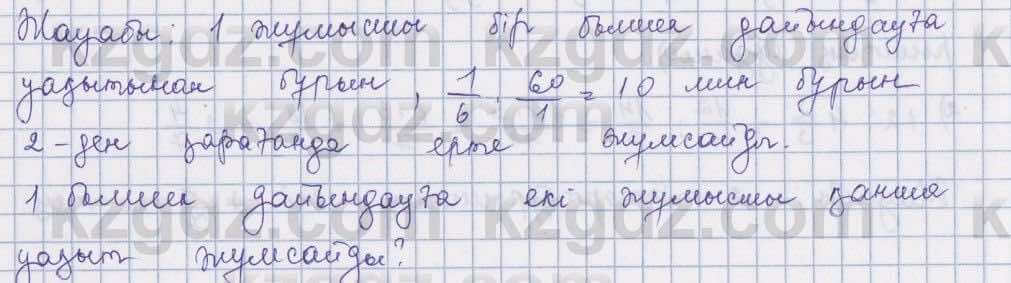 Жауабы: 1 жумысшы бір бөлшек дайындауға
уақытынан бұрын, 1/6 · 60/1 = 10 мин бұрын
2-ден қарағанда ерте жумсайды.
1 бөлшек дайындауға екі жумысшы қанша
уақыт жумсайды?